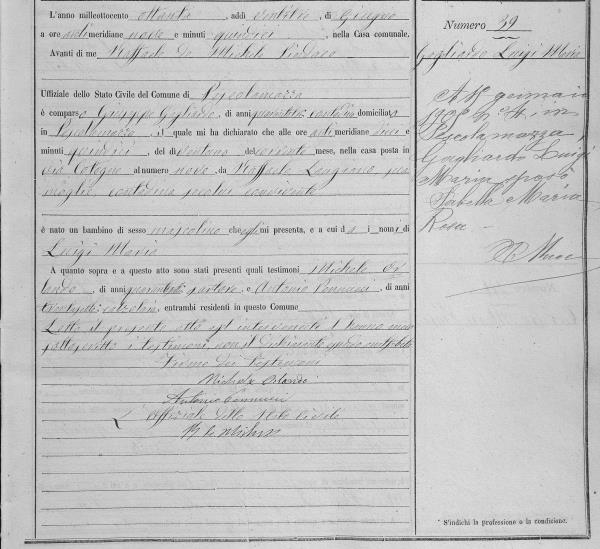 L'anno milleottocento ottanta, addì ventitre, di Giugno
a ore antimeridiane nove e minuti quindici, nella Casa comunale.
Avanti di me Raffaele De Michele Sindaco
Uffiziale dello Stato Civile del Comune di Pescolamazza
è comparso Giuseppe Gagliardo, di anni contadino domiciliato
in Pescolamazza, il quale mi ha dichiarato che alle ore antimeridiane dieci e
minuti quindici, del dì ventuno del corrente mese, nella casa posta in
via al numero nove, da Raffaela sua
moglie contadina seco lui convivente
è nato un bambino di sesso mascolino che egli mi presenta, e a cui dà i nomi di
Luigi Maria
A quanto sopra e a questo atto sono stati presenti quali testimoni Michele Or
lando, di anni quaranta e Antonio Pennucci, di anni
trentasette calzolaio, entrambi residenti in questo Comune
Letto il presente atto agl'intervenuti l'hanno meco
sottoscritto i testimoni, non il dichiarante
Firme dei Testimoni
Michele Orlando
Antonio Pennucci
L'Uffiziale dello Stato Civile
R. De Michele
Numero 39
Gagliardo Luigi Maria
gennaio
in
Pescolamazza
Gagliardo Luigi
Maria sposò
Isabella Maria
Rosa
* S'indichi la professione o la condizione.